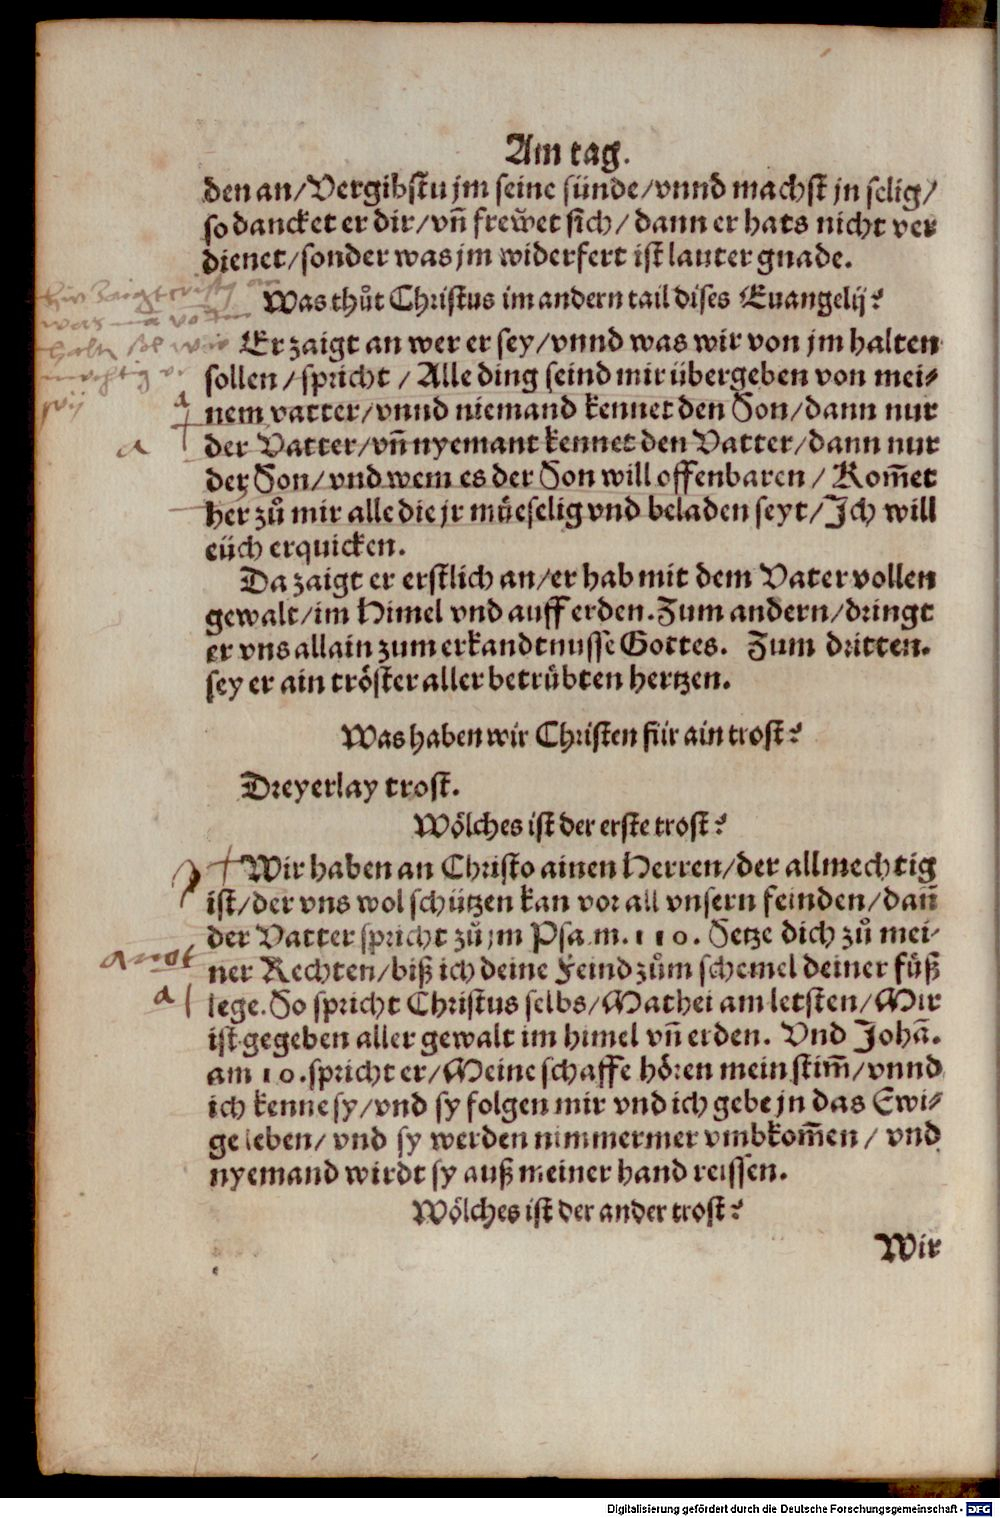 Am tag.
den an/Vergibstu jm seine sünde/vnnd machst jn selig/
so dancket er dir/vñ frewet sich/dann er hats nicht ver
dienet/sonder was jm widerfert ist lauter gnade.
Was thůt Christus im andern tail dises Euangelij?
Er zaigt an wer er sey/vnnd was wir von jm halten
sollen/spricht/Alle ding seind mir übergeben von mei⸗
nem vatter/vnnd niemand kennet den Son/dann nur
der Vatter/vñ nyemant kennet den Vatter/dann nur
der Son/vnd wem es der Son will offenbaren/Kom̃et
her zů mir alle die jr müeselig vnd beladen seyt/Ich will
eüch erquicken.
Da zaigt er erstlich an/er hab mit dem Vater vollen
gewalt/im Himel vnd auff erden. Zum andern/dringt
er vns allain zum erkandtnusse Gottes. Zum dritten.
sey er ain tröster aller betrübten hertzen.
Was haben wir Christen für ain trost?
Dreyerlay trost.
Wölches ist der erste trost?
Wir haben an Christo ainen Herren/der allmechtig
ist/der vns wol schützen kan vor all vnsern feinden/dañ
a der Vatter spricht zů jm Psa.m.110. Setze dich zů mei⸗
ner Rechten/biß ich deine Feind zům schemel deiner füß
a lege. So spricht Christus selbs/Mathei am letsten/Mir
ist gegeben aller gewalt im himel vñ erden. Vnd Johã.
am 10. spricht er/Meine schaffe hören mein stim̃/vnnd
ich kenne sy/vnd sy folgen mir vnd ich gebe jn das Ewi⸗
ge leben/vnd sy werden nimmermer vmbkom̃en/vnd
nyemand wirdt sy auß meiner hand reissen.
Wölches ist der ander trost?
Wir
Digitalisierung gefördert durch die Deutsche Forschungsgemeinschaft - DFG